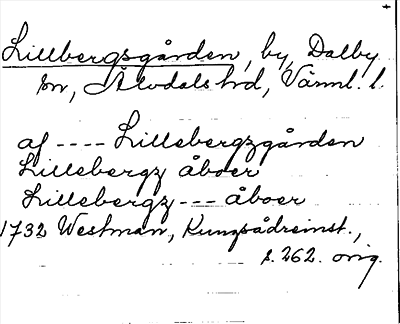 Lillbergsgården, by, Dalby
sn, Älvdals hd, Värml. l.
af ---- Lillebergzgården
Lillebergz åboer
Lillebergz --- åboer
1732 Westman, Kungsådreinst.,
s. 262. orig.